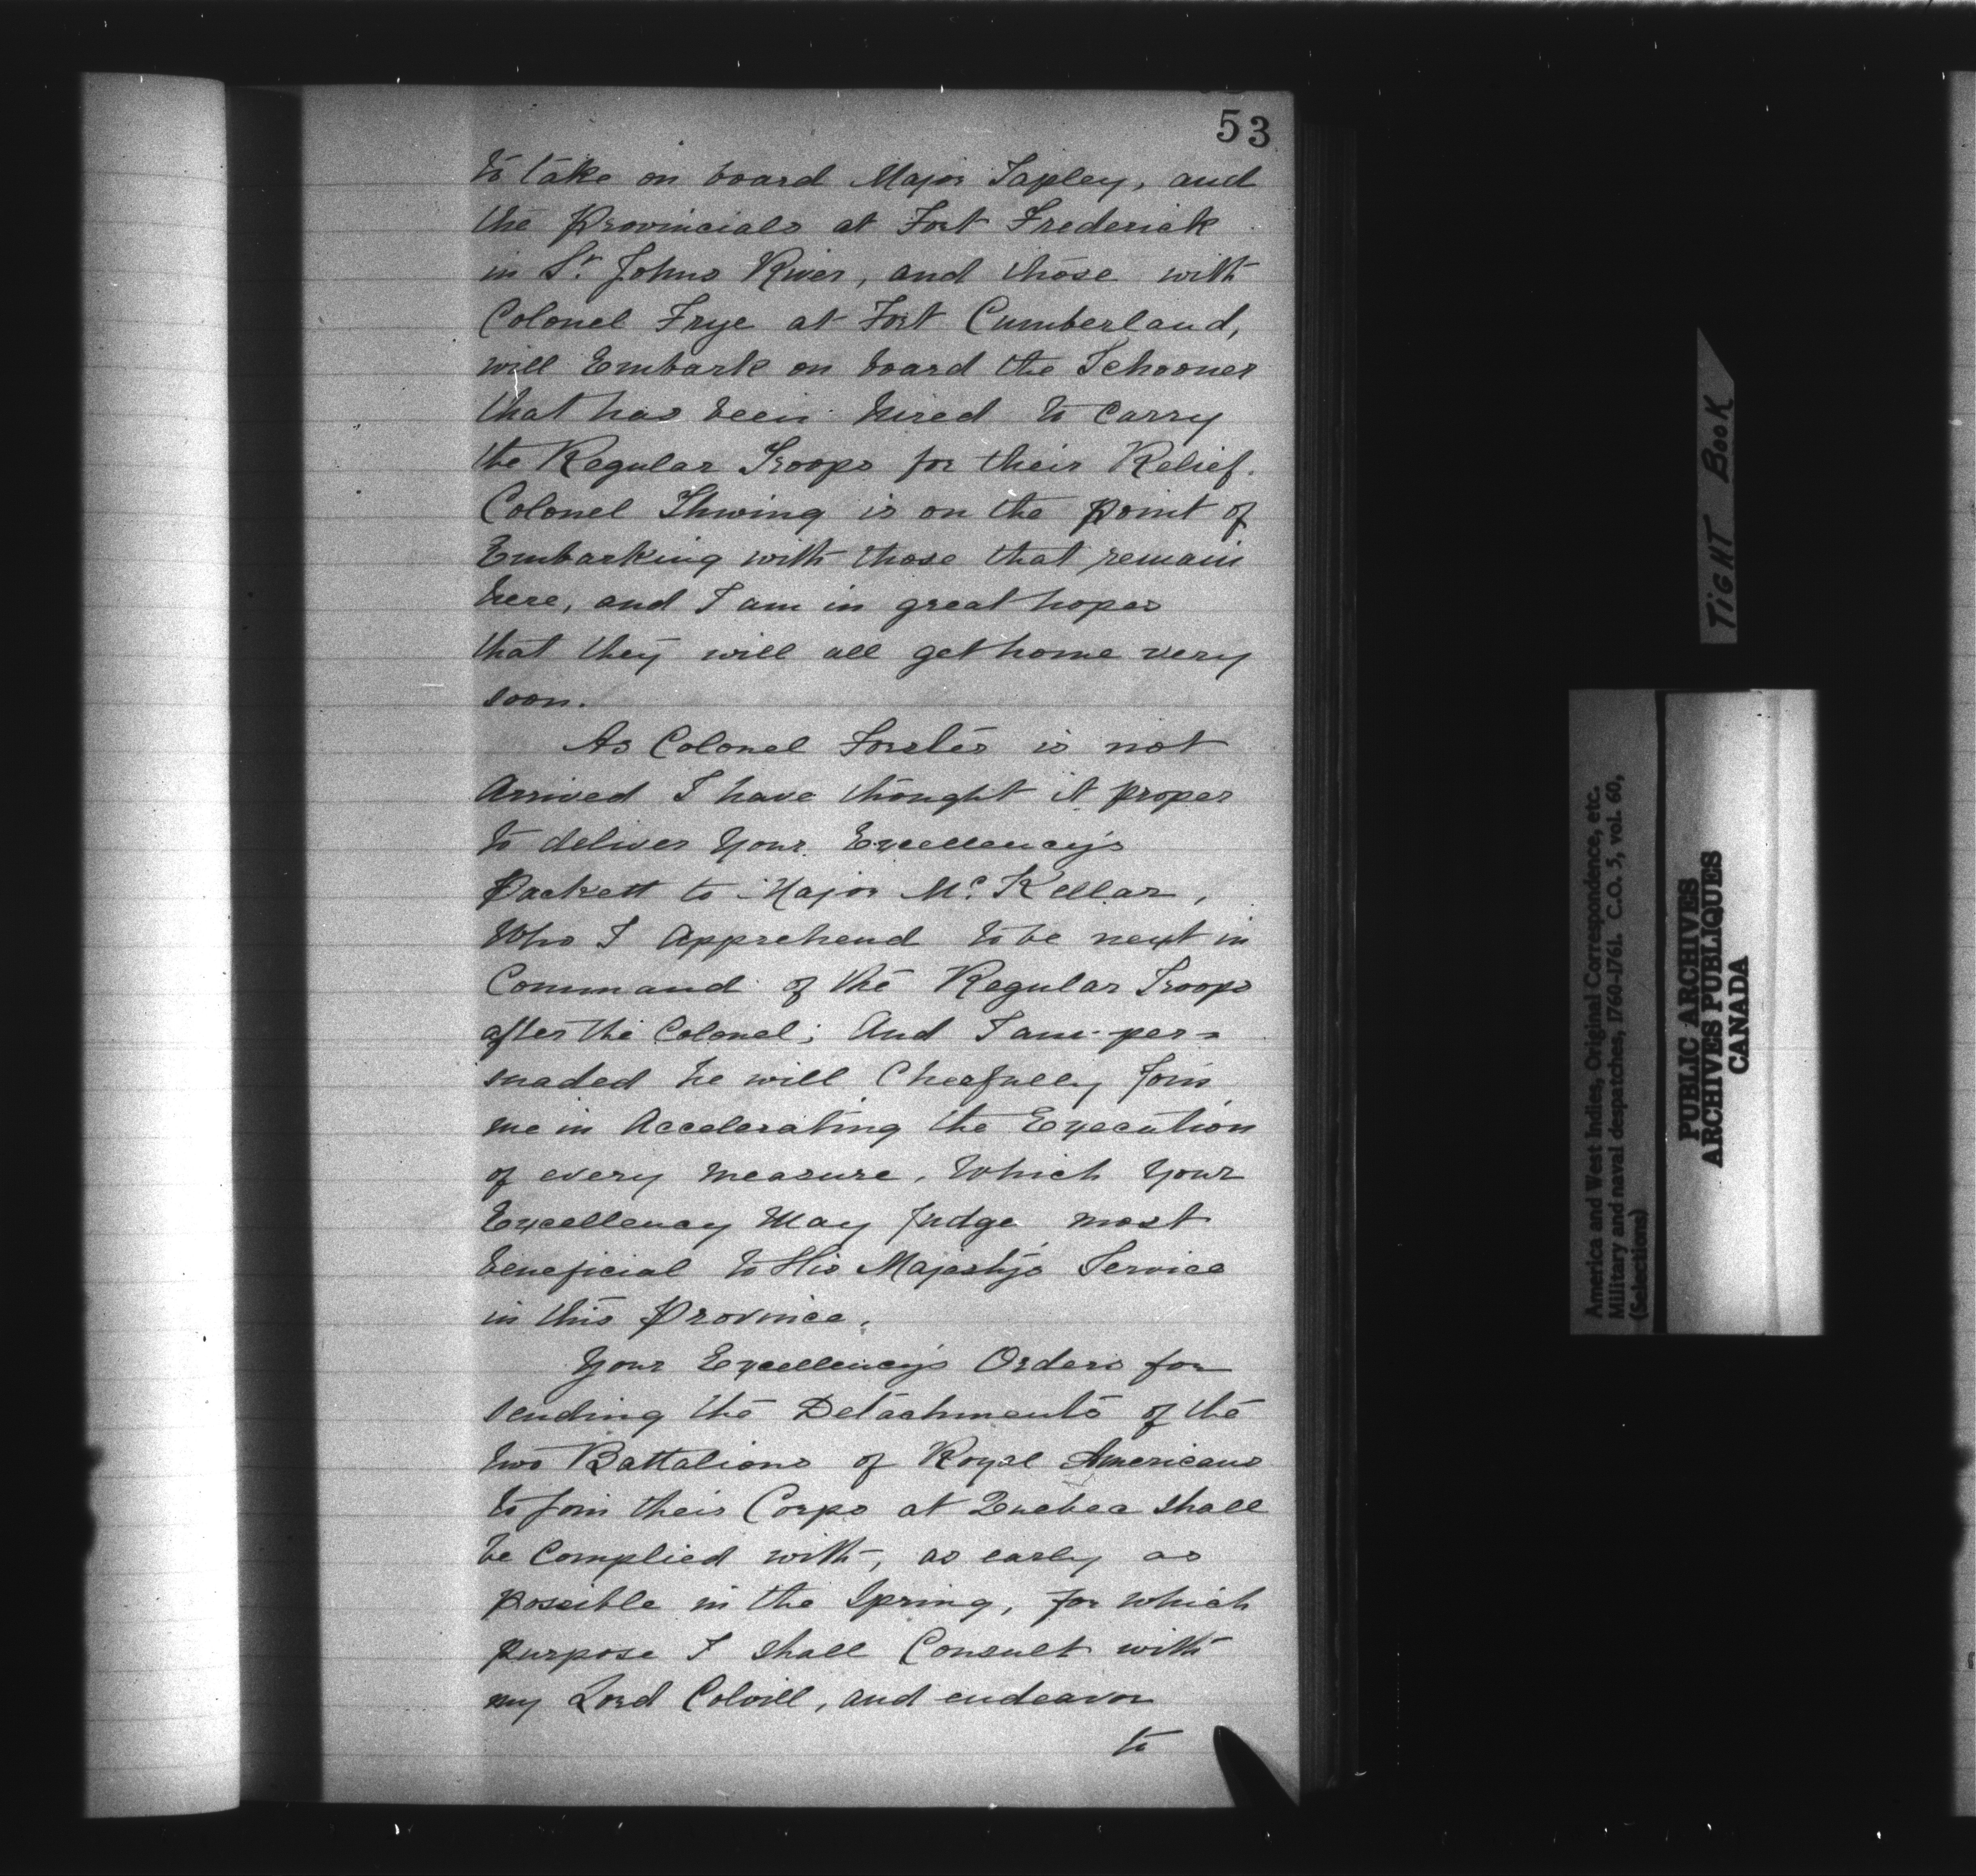 53
to take on board Major Tapley, and
the Provincials at Fort Frederick
in St. Johns River, and those with
Colonel Frye at Fort Cumberland,
will Embark on board the Schooner
that has been hired to Carry
the Regular Troops for their Relief.
Colonel Thwing is on the point of
Embarking with those that remain
here, and I am in great hopes
that they will all get home very
soon.
As Colonel Forster is not
Arrived I have thought it proper
to deliver Your Excellency's
Packett to Major Mc. Kellar,
Who I Apprehend to be next in
Command of the Regular Troops
after the Colonel; And I am per=
suaded he will Chearfully Join
me in Accelerating the Execution
of every measure, Which Your
Excellency May Judge most
beneficial to His Majesty's Service
in this Province.
Your Excellency's Orders for
sending the Detachments of the
two Battalions of Royal Americans
to Join their Corps at Quebec shall
be Complied with, as early as
possible in the Spring, for which
purpose I shall Consult with
my Lord Colvill, and endeavor
to
TIGHT BOOK
America and West Indies, Original Correspondence, etc.
Military and naval despatches, 1760-1761. C.O. 5, vol. 60,
(Selections)
PUBLIC ARCHIVES
ARCHIVES PUBLIQUES
CANADA